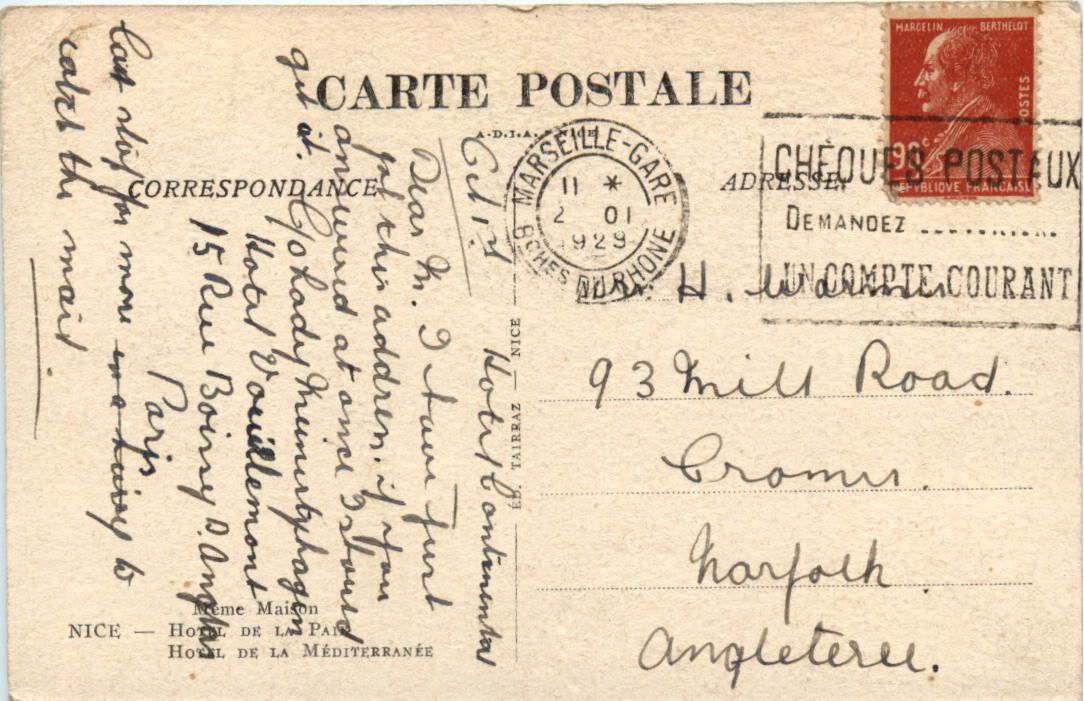 MARCELIN BERTHELOT
POSTES
90c
REPVBLIQVE FRANÇAISE
CARTE POSTALE
A-D.I.A. NICE
CORRESPONDANCE
ADRESSE
MARSEILLE-GARE
11 *
2 01
1929
BCHES DU RHONE
CHÈQUES POSTAUX
DEMANDEZ
UN COMPTE COURANT
Hotel Continental
Oct 1st
Dear M. I have just
got this address, if you
answered at once I should
get it.
C/o Lady
Hotel Vouillemont
15 Rue Boissy D. Anglas
Paris
Cant stop for more in a hurry to
catch the mail.
H. Warner
93 Mill Road.
Cromer.
Norfolk
Angleterre.
ED. TAIRRAZ — NICE
Même Maison
NICE — HOTEL DE LA PAIX
HOTEL DE LA MÉDITERRANÉE